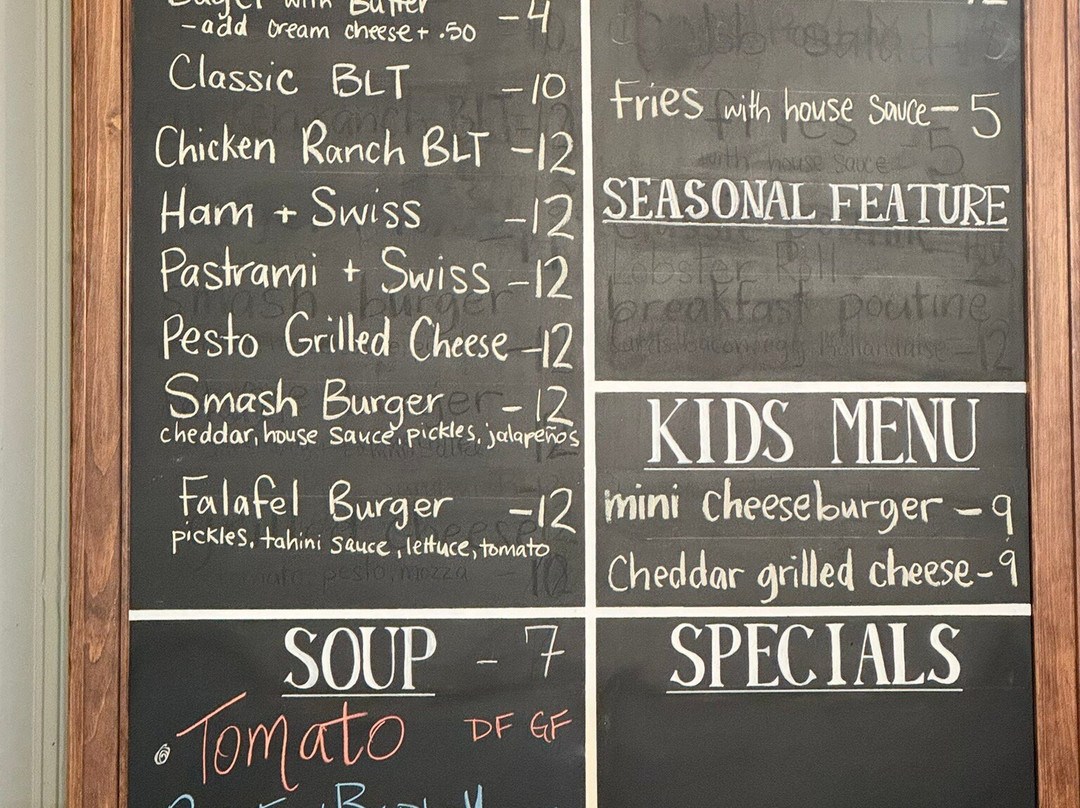 with Butter -4
-add cream cheese + .50
Classic BLT -10
Chicken Ranch BLT -12
Ham + Swiss -12
Pastrami + Swiss -12
Pesto Grilled Cheese -12
Smash Burger -12
cheddar, house sauce, pickles, jalapeños
Falafel Burger -12
pickles, tahini sauce, lettuce, tomato
SOUP - 7
Tomato DF GF
Fries with house sauce - 5
SEASONAL FEATURE
Lobster Roll
breakfast poutine
KIDS MENU
mini cheeseburger - 9
Cheddar grilled cheese - 9
SPECIALS